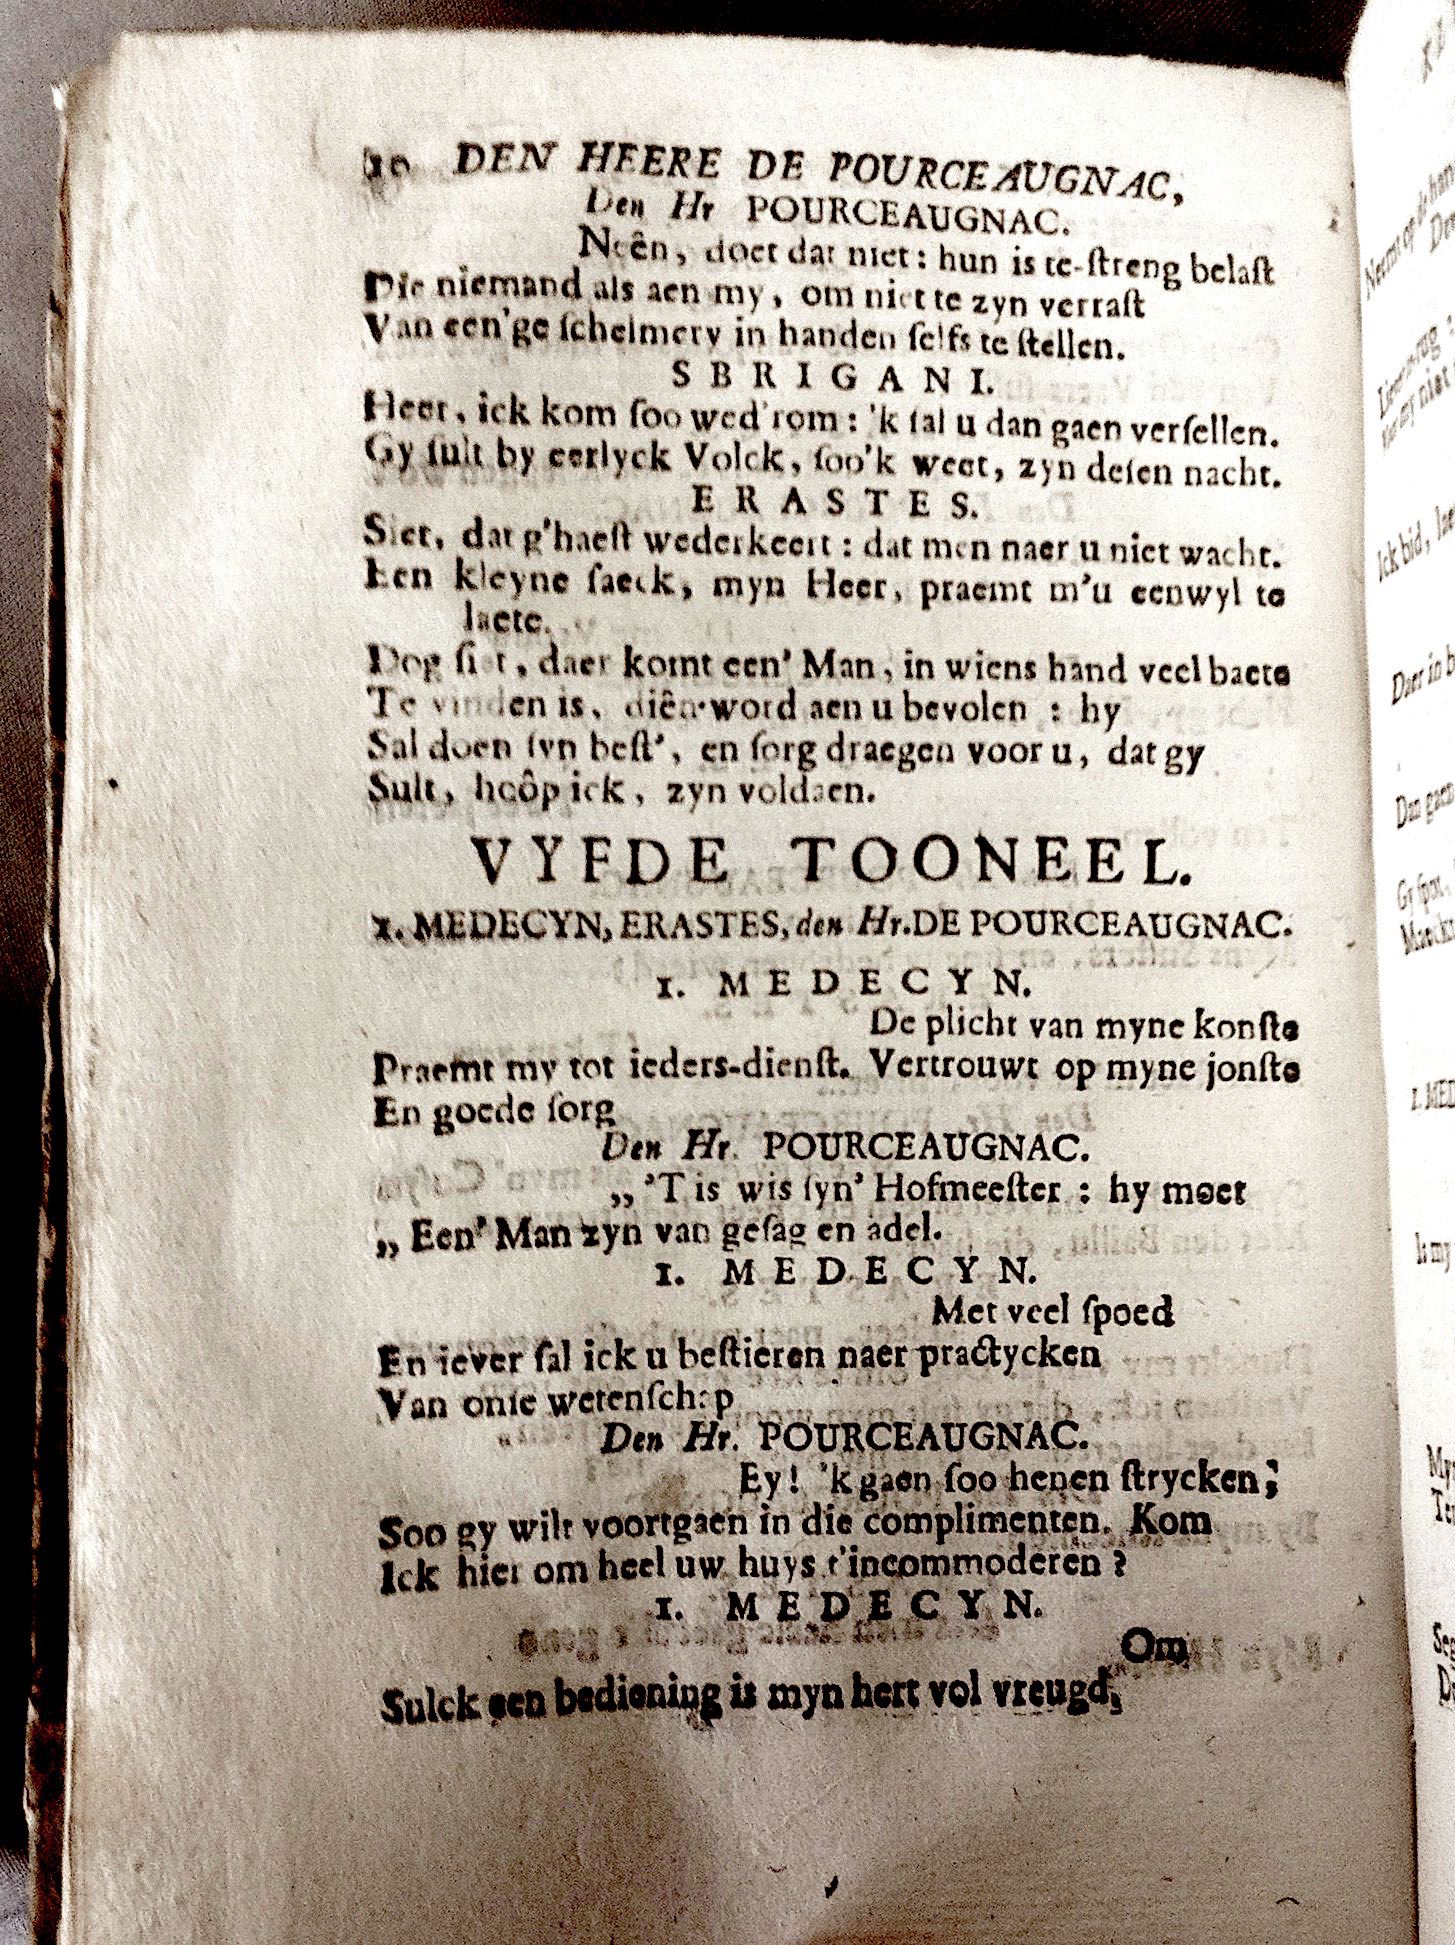 10 DEN HEERE DE POURCEAUGNAC,
Den Hr POURCEAUGNAC.
Neên, doet dat niet: hun is te-ſtreng belaſt
Die niemand als aen my, om niet te zyn verraſt
Van een'ge ſchelmery in handen ſelfs te ſtellen.
SBRIGANI.
Heer, ick kom ſoo wed'rom: 'k ſal u dan gaen verſellen.
Gy ſult by eerlyck Volck, ſoo'k weet, zyn deſen nacht.
ERASTES.
Siet, dat g'haeſt wederkeert: dat men naer u niet wacht.
Een kleyne ſaeck, myn Heer, praemt m'u eenwyl te
laete.
Dog ſiet, daer komt een' Man, in wiens hand veel baete
Te vinden is, diên word aen u bevolen : hy
Sal doen ſyn beſt', en ſorg draegen voor u, dat gy
Sult, hoôp ick, zyn voldaen.
VYFDE TOONEEL.
1. MEDECYN, ERASTES, den Hr. DE POURCEAUGNAC.
1. MEDECYN.
De plicht van myne konſte
Praemt my tot ieders-dienſt. Vertrouwt op myne jonſte
En goede ſorg
Den Hr. POURCEAUGNAC.
„ 'T is wis ſyn' Hofmeeſter : hy moet
„ Een' Man zyn van geſag en adel.
1. MEDECYN.
Met veel ſpoed
En iever ſal ick u beſtieren naer practycken
Van onſe wetenſchap
Den Hr. POURCEAUGNAC.
Ey! 'k gaen ſoo henen ſtrycken;
Soo gy wilt voortgaen in die complimenten. Kom
Ick hier om heel uw huys t'incommoderen?
1. MEDECYN.
Om
Sulck een bediening is myn hert vol vreugd,